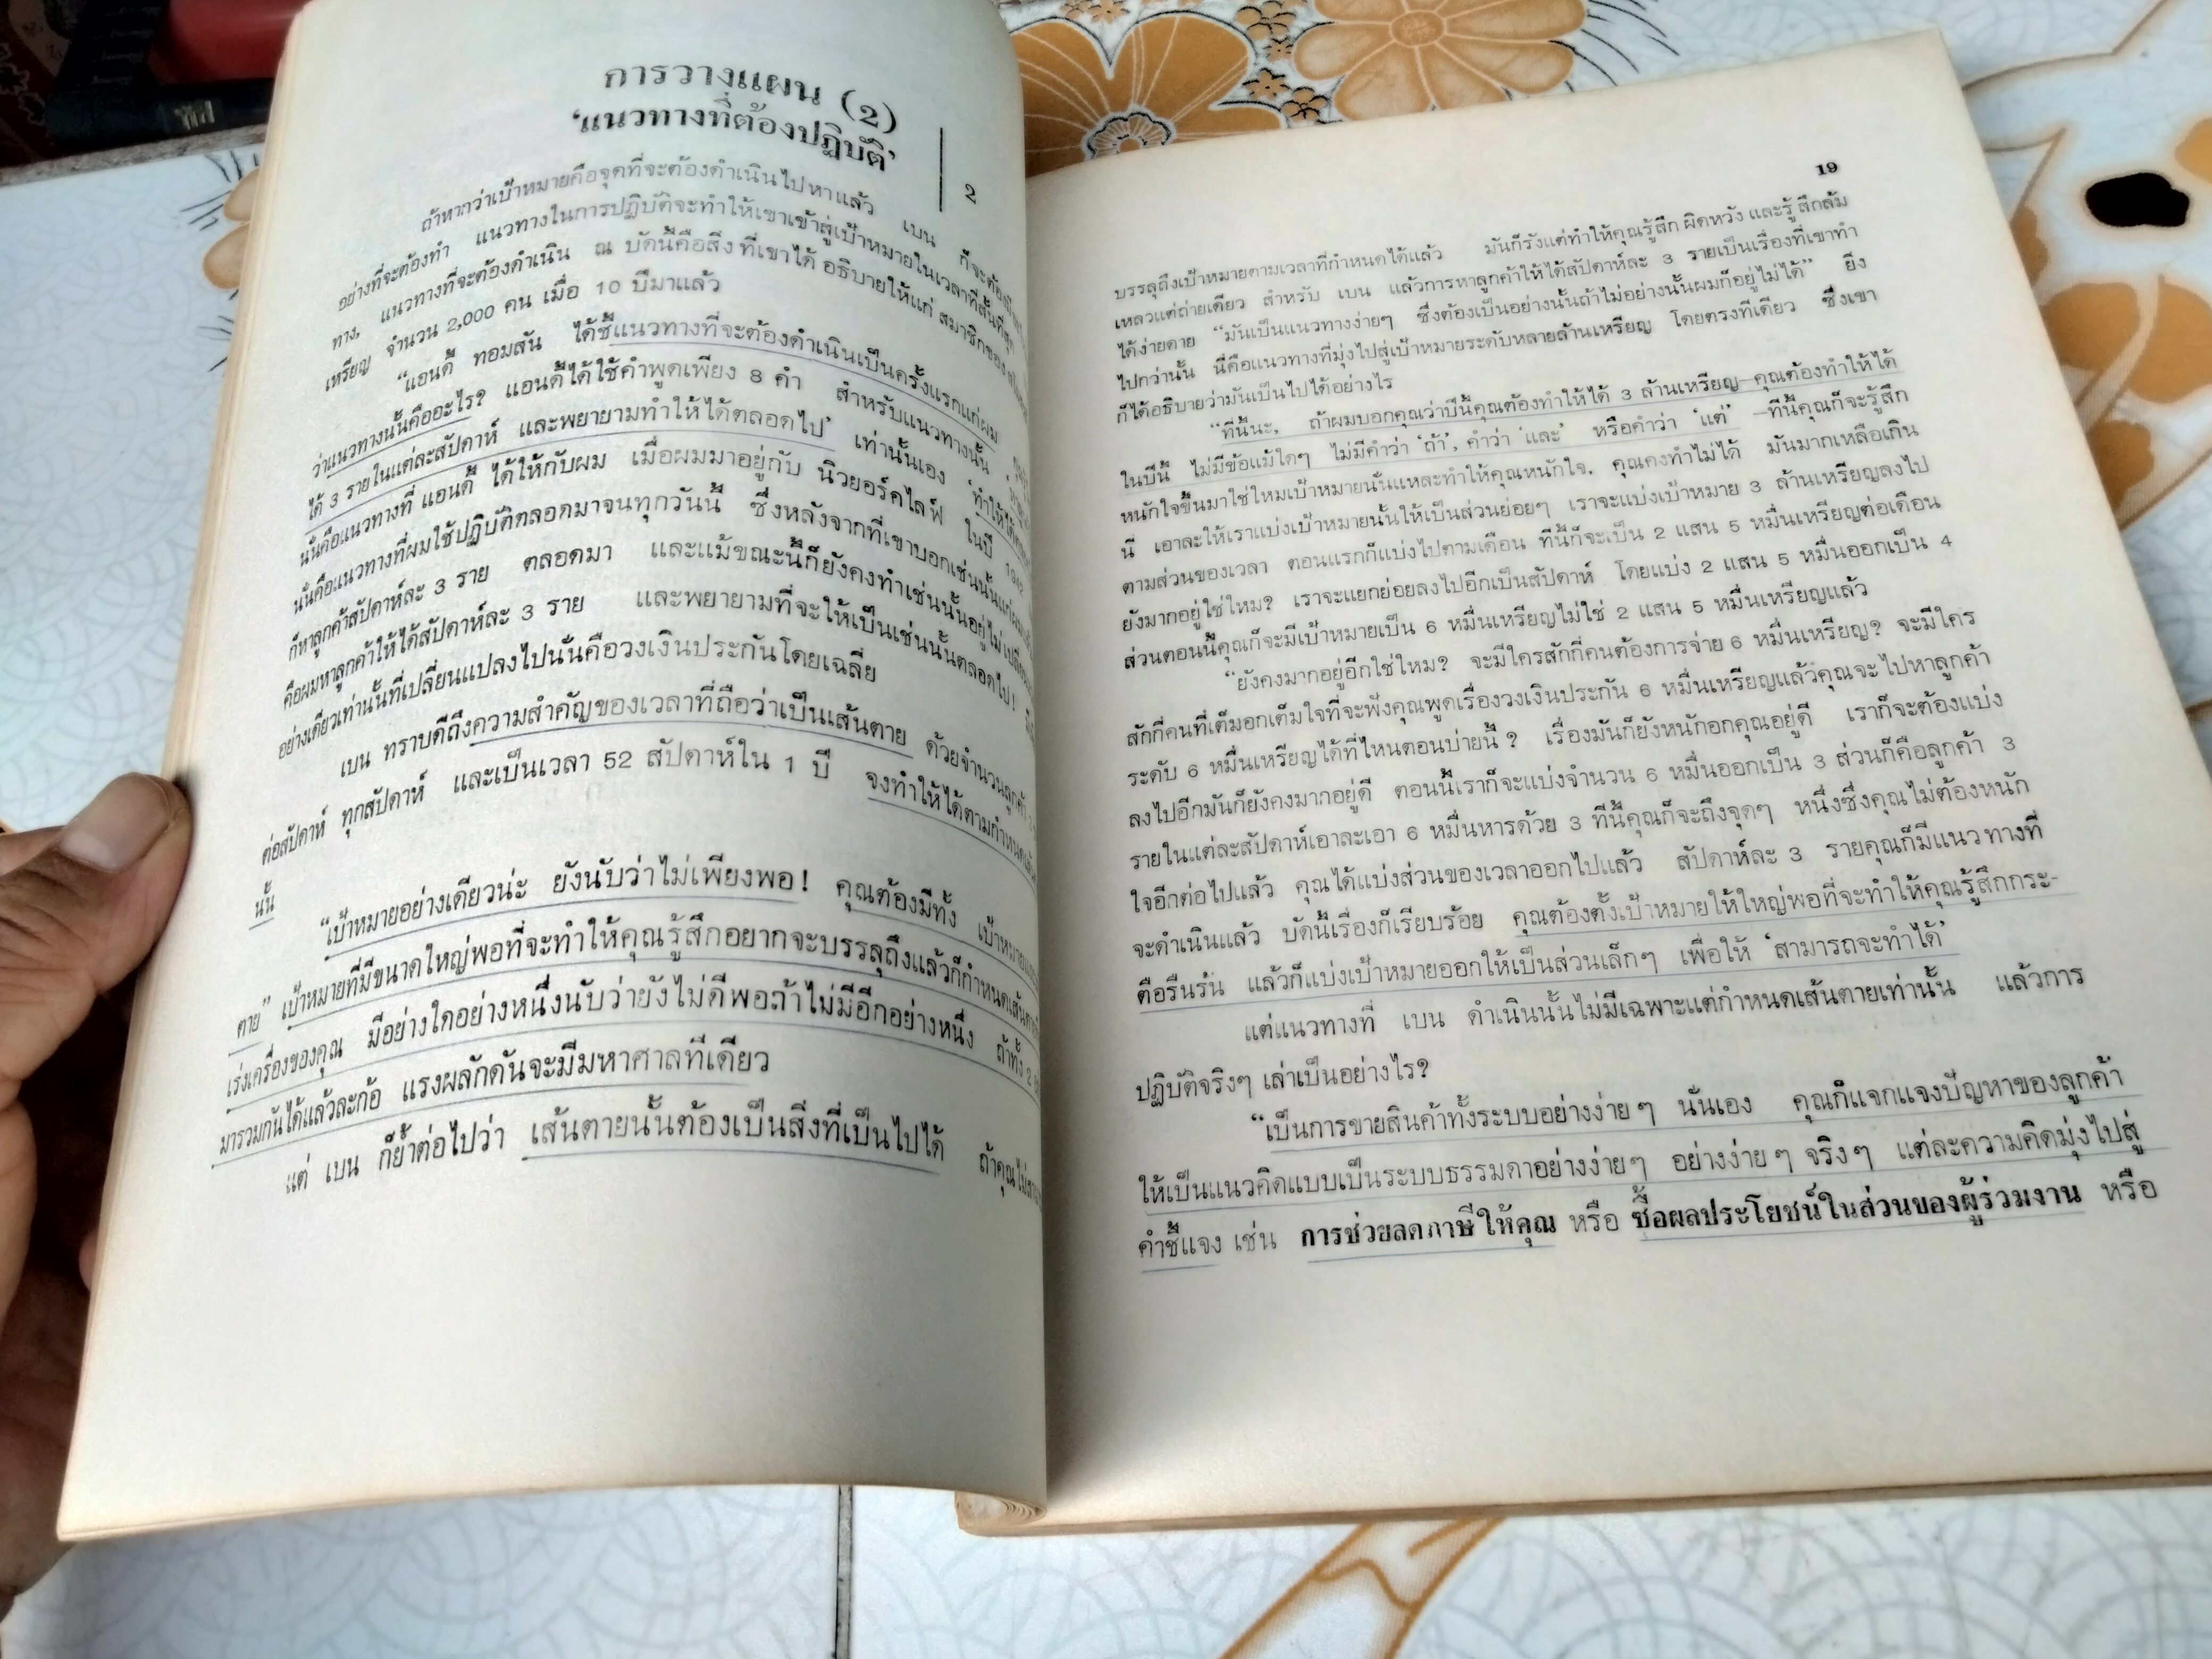 การวางแผน (2)
'แนวทางที่ต้องปฏิบัติ'
2
ถ้าหากว่าเป้าหมายคือจุดที่จะต้องดำเนินไปหาแล้ว เบน ก็จะต้องมี
อย่างที่จะต้องทำ แนวทางในการปฏิบัติจะทำให้เขาเข้าสู่เป้าหมายในเวลาที่สั้นที่สุด
ทาง, แนวทางที่จะต้องดำเนิน ณ บัดนี้คือสิ่งที่เขาได้อธิบายให้แก่ สมาชิกของ
เหรียญ จำนวน 2,000 คน เมื่อ 10 ปีมาแล้ว
"แอนดี้ ทอมสัน ได้ชี้แนวทางที่จะต้องดำเนินเป็นครั้งแรกแก่ผม
ว่าแนวทางนั้นคืออะไร? แอนดี้ได้ใช้คำพูดเพียง 8 คำ สำหรับแนวทางนั้น 'ทำให้
ได้ 3 รายในแต่ละสัปดาห์ และพยายามทำให้ได้ตลอดไป' เท่านั้นเอง
นั่นคือแนวทางที่ แอนดี้ ได้ให้กับผม เมื่อผมมาอยู่กับ นิวยอร์คไลฟ์ ในปี 1942
นั่นคือแนวทางที่ผมใช้ปฏิบัติตลอดมาจนทุกวันนี้ ซึ่งหลังจากที่เขาบอกเช่นนั้นแก่ผมแล้ว
ก็หาลูกค้าสัปดาห์ละ 3 ราย ตลอดมา และแม้ขณะนี้ก็ยังคงทำเช่นนั้นอยู่ไม่เปลี่ยน
คือผมหาลูกค้าให้ได้สัปดาห์ละ 3 ราย และพยายามที่จะให้เป็นเช่นนั้นตลอดไป!
อย่างเดียวเท่านั้นที่เปลี่ยนแปลงไปนั่นคือวงเงินประกันโดยเฉลี่ย
เบน ทราบดีถึงความสำคัญของเวลาที่ถือว่าเป็นเส้นตาย ด้วยจำนวนลูกค้า
ต่อสัปดาห์ ทุกสัปดาห์ และเป็นเวลา 52 สัปดาห์ใน 1 ปี จงทำให้ได้ตามกำหนด
นั้น
"เป้าหมายอย่างเดียวน่ะ ยังนับว่าไม่เพียงพอ! คุณต้องมีทั้ง เป้าหมาย
ตาย" เป้าหมายที่มีขนาดใหญ่พอที่จะทำให้คุณรู้สึกอยากจะบรรลุถึงแล้วก็กำหนดเส้นตาย
เร่งเครื่องของคุณ มีอย่างใดอย่างหนึ่งนับว่ายังไม่ดีพอถ้าไม่มีอีกอย่างหนึ่ง ถ้าทั้ง 2
มารวมกันได้แล้วละก้อ แรงผลักดันจะมีมหาศาลทีเดียว
แต่ เบน ก็ย้ำต่อไปว่า เส้นตายนั้นต้องเป็นสิ่งที่เป็นไปได้ ถ้าคุณไม่
19
บรรลุถึงเป้าหมายตามเวลาที่กำหนดได้แล้ว มันก็รังแต่ทำให้คุณรู้สึก ผิดหวัง และรู้สึกล้ม
เหลวแต่ถ่ายเดียว สำหรับ เบน แล้วการหาลูกค้าให้ได้สัปดาห์ละ 3 รายเป็นเรื่องที่เขาทำ
ได้ง่ายดาย "มันเป็นแนวทางง่ายๆ ซึ่งต้องเป็นอย่างนั้นถ้าไม่อย่างนั้นผมก็อยู่ไม่ได้" ยิ่ง
ไปกว่านั้น นี่คือแนวทางที่มุ่งไปสู่เป้าหมายระดับหลายล้านเหรียญ โดยตรงทีเดียว ซึ่งเขา
ก็ได้อธิบายว่ามันเป็นไปได้อย่างไร
"ทีนี้นะ, ถ้าผมบอกคุณว่าปีนี้คุณต้องทำให้ได้ 3 ล้านเหรียญ—คุณต้องทำให้ได้
ในปีนี้ ไม่มีข้อแม้ใดๆ ไม่มีคำว่า 'ถ้า', คำว่า 'และ' หรือคำว่า 'แต่' —ทีนี้คุณก็จะรู้สึก
หนักใจขึ้นมาใช่ไหมเป้าหมายนั่นแหละทำให้คุณหนักใจ, คุณคงทำไม่ได้ มันมากเหลือเกิน
นี่ เอาละให้เราแบ่งเป้าหมายนั้นให้เป็นส่วนย่อยๆ เราจะแบ่งเป้าหมาย 3 ล้านเหรียญลงไป
ตามส่วนของเวลา ตอนแรกก็แบ่งไปตามเดือน ทีนี้ก็จะเป็น 2 แสน 5 หมื่นเหรียญต่อเดือน
ยังมากอยู่ใช่ไหม? เราจะแยกย่อยลงไปอีกเป็นสัปดาห์ โดยแบ่ง 2 แสน 5 หมื่นออกเป็น 4
ส่วนตอนนี้คุณก็จะมีเป้าหมายเป็น 6 หมื่นเหรียญไม่ใช่ 2 แสน 5 หมื่นเหรียญแล้ว
"ยังคงมากอยู่อีกใช่ไหม? จะมีใครสักกี่คนต้องการจ่าย 6 หมื่นเหรียญ? จะมีใคร
สักกี่คนที่เต็มอกเต็มใจที่จะฟังคุณพูดเรื่องวงเงินประกัน 6 หมื่นเหรียญแล้วคุณจะไปหาลูกค้า
ระดับ 6 หมื่นเหรียญได้ที่ไหนตอนบ่ายนี้ ? เรื่องมันก็ยังหนักอกคุณอยู่ดี เราก็จะต้องแบ่ง
ลงไปอีกมันก็ยังคงมากอยู่ดี ตอนนี้เราก็จะแบ่งจำนวน 6 หมื่นออกเป็น 3 ส่วนก็คือลูกค้า 3
รายในแต่ละสัปดาห์เอาละเอา 6 หมื่นหารด้วย 3 ทีนี้คุณก็จะถึงจุดๆ หนึ่งซึ่งคุณไม่ต้องหนัก
ใจอีกต่อไปแล้ว คุณได้แบ่งส่วนของเวลาออกไปแล้ว สัปดาห์ละ 3 รายคุณก็มีแนวทางที่
จะดำเนินแล้ว บัดนี้เรื่องก็เรียบร้อย คุณต้องตั้งเป้าหมายให้ใหญ่พอที่จะทำให้คุณรู้สึกกระ-
ตือรือร้น แล้วก็แบ่งเป้าหมายออกให้เป็นส่วนเล็กๆ เพื่อให้ 'สามารถจะทำได้'
แต่แนวทางที่ เบน ดำเนินนั้นไม่มีเฉพาะแต่กำหนดเส้นตายเท่านั้น แล้วการ
ปฏิบัติจริงๆ เล่าเป็นอย่างไร?
"เป็นการขายสินค้าทั้งระบบอย่างง่ายๆ นั่นเอง คุณก็แจกแจงปัญหาของลูกค้า
ให้เป็นแนวคิดแบบเป็นระบบธรรมดาอย่างง่ายๆ อย่างง่ายๆ จริงๆ แต่ละความคิดมุ่งไปสู่
คำชี้แจง เช่น การช่วยลดภาษีให้คุณ หรือ ซื้อผลประโยชน์ในส่วนของผู้ร่วมงาน หรือ